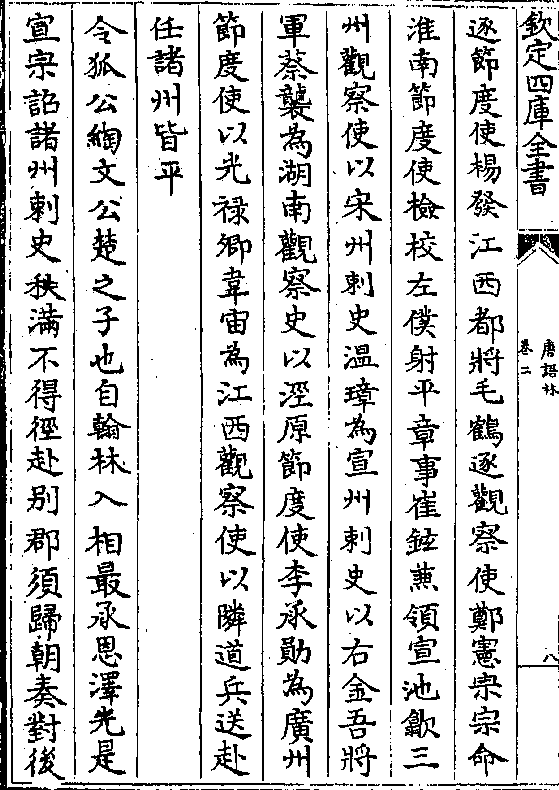 欽定四庫全書
唐語林
卷二
八
逐節度使楊發江西都將毛鶴逐觀察使鄭憲宗宗命
淮南節度使檢校左僕射平章事崔鉉兼領宣池歙三
州觀察使以宋州刺史溫璋為宣州刺史以右金吾將
軍蔡襲為湖南觀察史以涇原節度使李承勛為廣州
節度使以光祿卿韋宙為江西觀察使以隣道兵送赴
任諸州皆平
令狐公綯文公楚之子也自翰林入相最承恩澤先是
宣宗詔諸州刺史秩滿不得徑赴别郡須歸朝奏對後